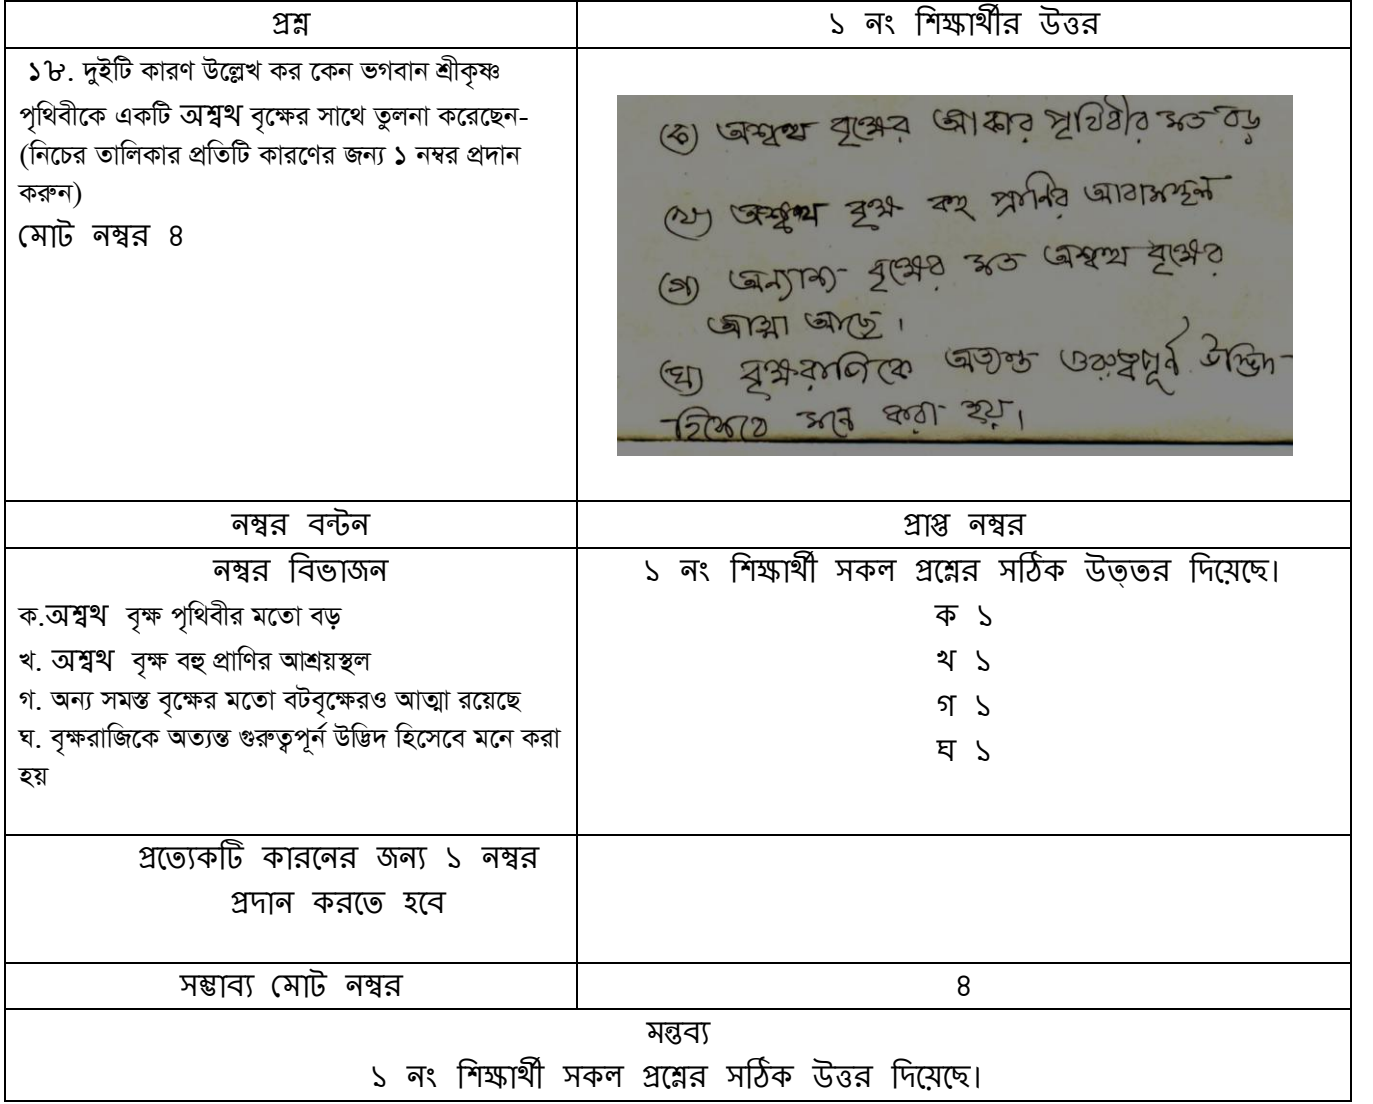 প্রশ্ন
১ নং শিক্ষার্থীর উত্তর
১৮. দুইটি কারণ উল্লেখ কর কেন ভগবান শ্রীকৃষ্ণ
পৃথিবীকে একটি অশ্বথ বৃক্ষের সাথে তুলনা করেছেন-
(নিচের তালিকার প্রতিটি কারণের জন্য ১ নম্বর প্রদান
করুন)
মোট নম্বর ৪
(ক) অশ্বত্থ বৃক্ষের আকার পৃথিবীর মত বড়
(খ) অশ্বত্থ বৃক্ষ বহু প্রাণির আবাসস্থল
(গ) অন্যান্য বৃক্ষের মত অশ্বত্থ বৃক্ষের
আত্মা আছে।
(ঘ) বৃক্ষরাজিকে অত্যন্ত গুরুত্বপূর্ন উদ্ভিদ
হিসেবে মনে করা হয়।
নম্বর বন্টন
প্রাপ্ত নম্বর
নম্বর বিভাজন
ক.অশ্বথ বৃক্ষ পৃথিবীর মতো বড়
খ. অশ্বথ বৃক্ষ বহু প্রাণির আশ্রয়স্থল
গ. অন্য সমস্ত বৃক্ষের মতো বটবৃক্ষেরও আত্মা রয়েছে
ঘ. বৃক্ষরাজিকে অত্যন্ত গুরুত্বপূর্ন উদ্ভিদ হিসেবে মনে করা
হয়
১ নং শিক্ষার্থী সকল প্রশ্নের সঠিক উত্‌তর দিয়েছে।
ক ১
খ ১
গ ১
ঘ ১
প্রত্যেকটি কারনের জন্য ১ নম্বর
প্রদান করতে হবে
সম্ভাব্য মোট নম্বর
৪
মন্তব্য
১ নং শিক্ষার্থী সকল প্রশ্নের সঠিক উত্তর দিয়েছে।